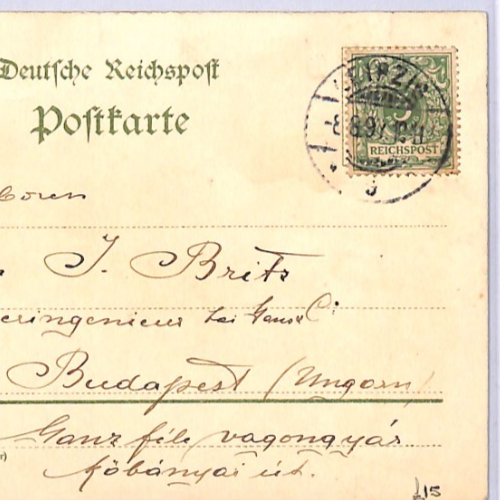 Deutsche Reichspost
Postkarte
LEIPZIG
5
REICHSPOST
-8.8.97.
J. Britz
eringenieur bei Ganz & Ci
Budapest (Ungarn)
Ganz féle vagongyár
Kőbányai út.
£15